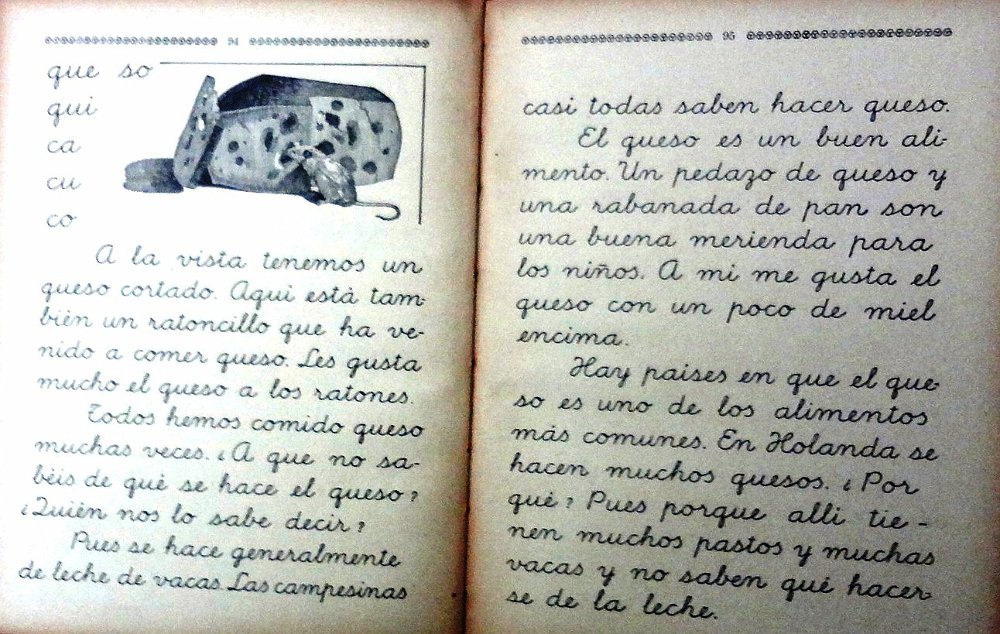 94
que so
qui
ca
cu
co
A la vista tenemos un
queso cortado. Aquí está tam-
bién un ratoncillo que ha ve-
nido a comer queso. Les gusta
mucho el queso a los ratones.
Todos hemos comido queso
muchas veces. ¿A que no sa-
béis de qué se hace el queso?
¿Quién nos lo sabe decir?
Pues se hace generalmente
de leche de vacas. Las campesinas
95
casi todas saben hacer queso.
El queso es un buen ali-
mento. Un pedazo de queso y
una rabanada de pan son
una buena merienda para
los niños. A mi me gusta el
queso con un poco de miel
encima.
Hay paises en que el que-
so es uno de los alimentos
más comunes. En Holanda se
hacen muchos quesos. ¿Por
qué? Pues porque alli tie-
nen muchos pastos y muchas
vacas y no saben qué hacer-
se de la leche.